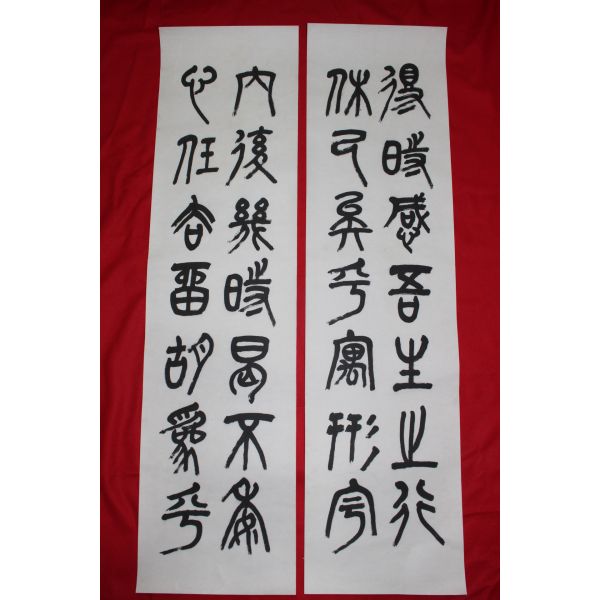 得時感吾生之行
休已矣乎寓形宇
內復幾時曷不委
心任去留胡為乎